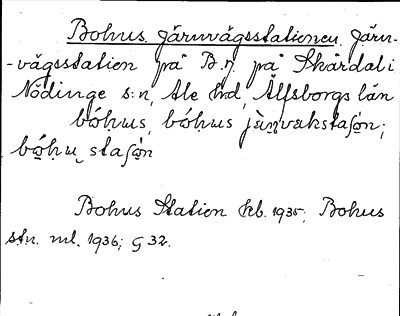 Bohus, järnvägsstationen. Järn-
-vägsstation på B.η. på Skårdal i
Nödinge s:n, Ale hrd, Älfsborgs län
bóhus, bóhus jàṇvakstaʃón;
bóhu staʃón
Bohus Station kb. 1935; Bohus
stn. ml. 1936; G 32.